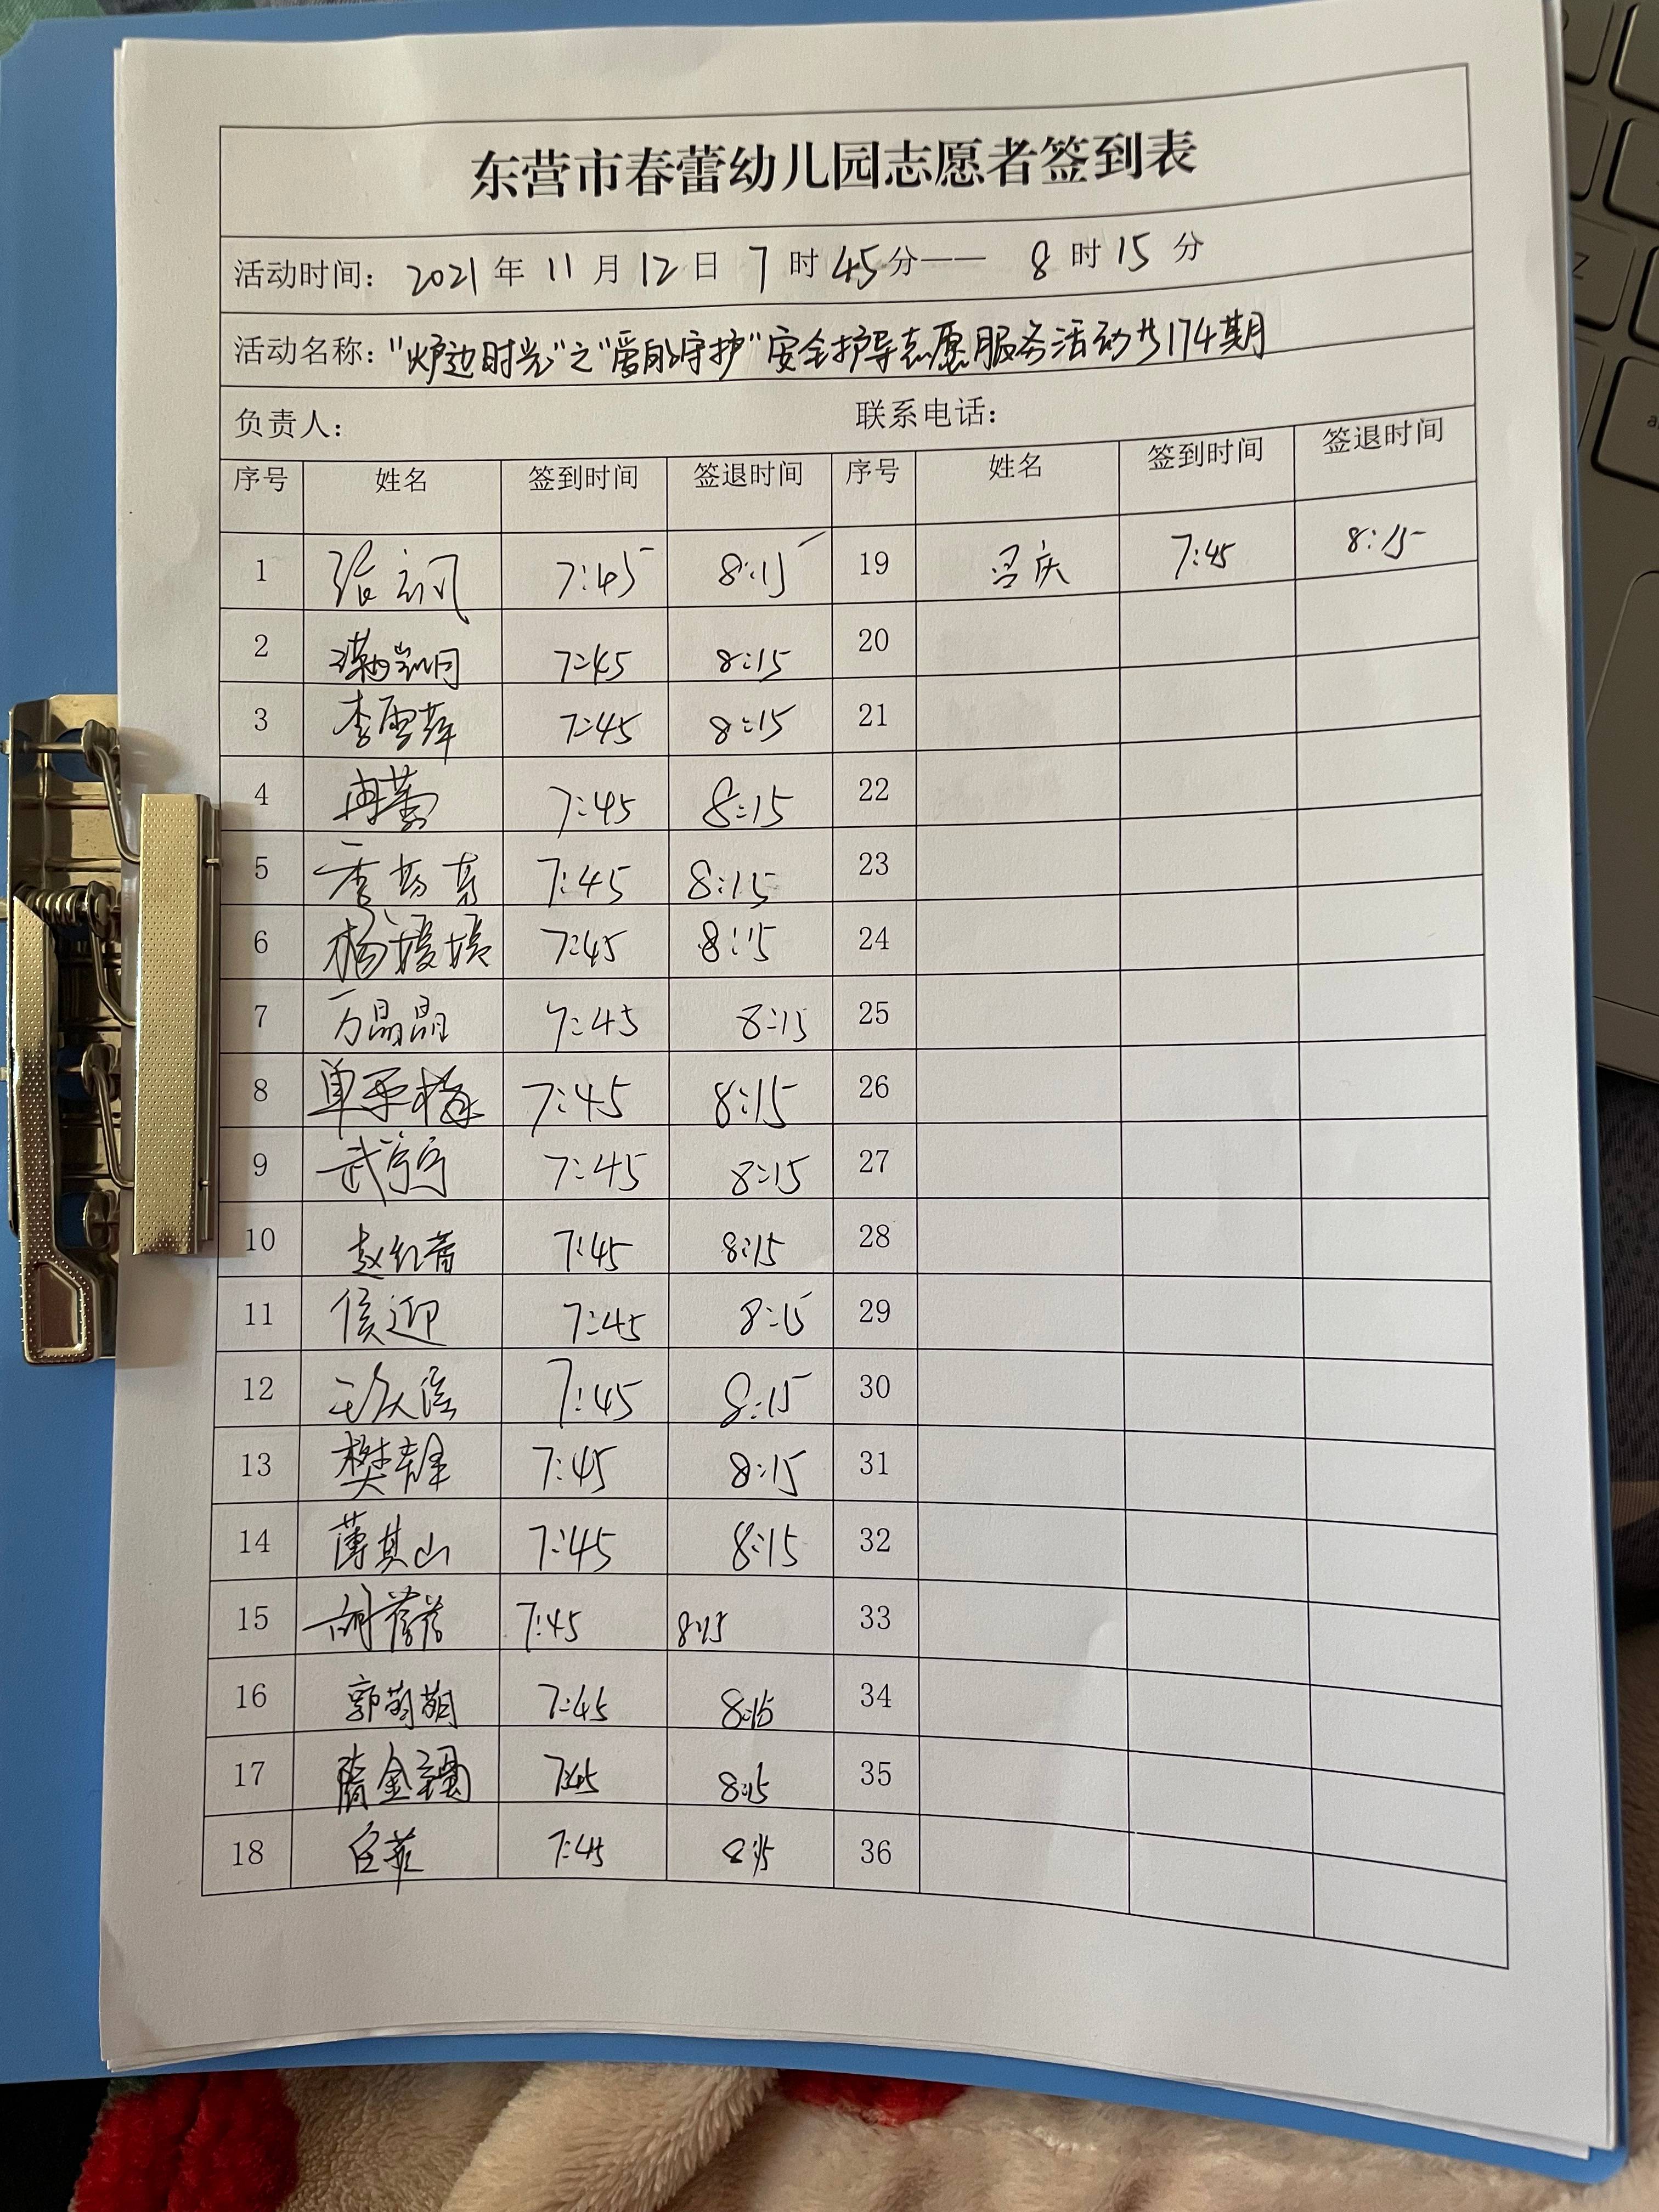 东营市春蕾幼儿园志愿者签到表
活动时间: 2021 年 11 月 12 日 7 时 45 分—— 8 时 15 分
活动名称: "炉边时光"之"爱的守护"安全护导志愿服务活动共174期
负责人: 联系电话:
序号 姓名 签到时间 签退时间 序号 姓名 签到时间 签退时间
1 张 7:45 8:15 19 吕庆 7:45 8:15
2 7:45 8:15 20
3 李雪萍 7:45 8:15 21
4 冉蕾 7:45 8:15 22
5 季 7:45 8:15 23
6 杨媛媛 7:45 8:15 24
7 万晶晶 7:45 8:15 25
8 单 梅 7:45 8:15 26
9 武宁宁 7:45 8:15 27
10 赵红蕾 7:45 8:15 28
11 侯迎 7:45 8:15 29
12 7:45 8:15 30
13 樊 7:45 8:15 31
14 薄其山 7:45 8:15 32
15 胡蓉蓉 7:45 8:15 33
16 郭萌萌 7:45 8:15 34
17 隋金 7:45 8:15 35
18 白菲 7:45 8:15 36